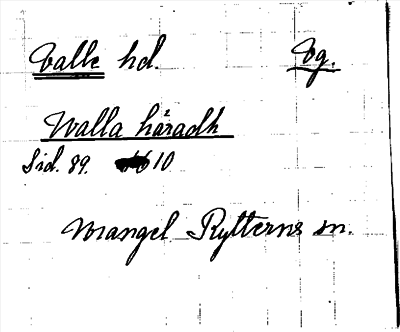 Valle hd. Vg.
Walla häradh
Sid. 89. 10
Mangel Rytterns sn.